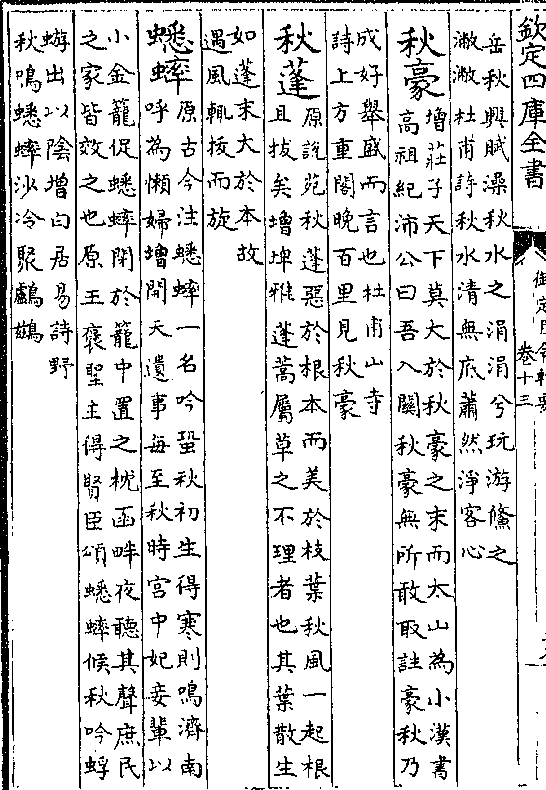 欽定四庫全書
御定月令輯要
卷十三
岳秋興賦澡秋水之涓涓兮玩游鯈之
潎潎杜甫詩秋水清無底蕭然淨客心
秋豪
增莊子天下莫大於秋豪之末而太山為小漢書
高祖紀沛公曰吾入關秋豪無所敢取註豪秋乃
成好舉盛而言也杜甫山寺
詩上方重閣晚百里見秋豪
秋蓬
原說苑秋蓬惡於根本而美於枝葉秋風一起根
且拔矣增埤雅蓬蒿屬草之不理者也其葉散生
如蓬末大於本故
遇風輒拔而旋
蟋蟀
原古今注蟋蟀一名吟蛩秋初生得寒則鳴濟南
呼為懶婦增開天遺事每至秋時宮中妃妾輩以
小金籠促蟋蟀閉於籠中置之枕函畔夜聽其聲庶民
之家皆效之也原王褒聖主得賢臣頌蟋蟀候秋吟蜉
蝣出以陰增白居易詩野
秋鳴蟋蟀沙冷聚鸕鶿